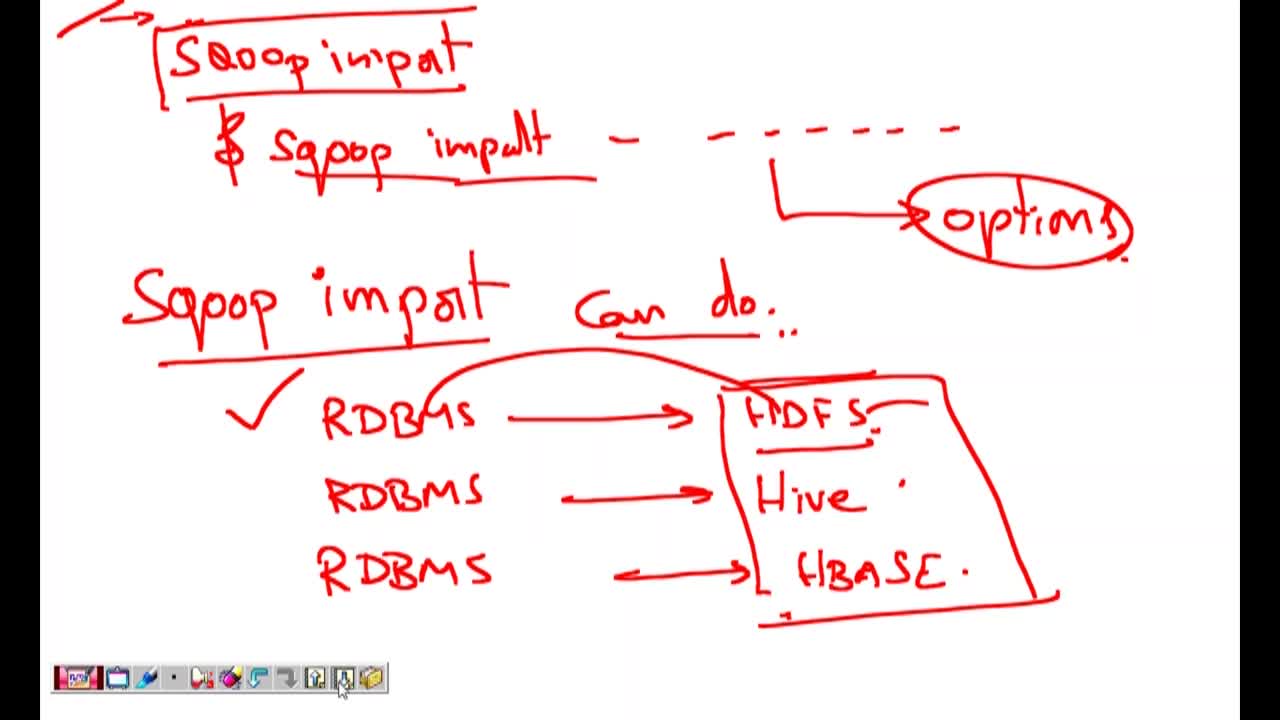 Sqoop import
$ sqoop import - - - - - - -
options
Sqoop import can do..
RDBMS → HDFS
RDBMS → Hive
RDBMS → HBASE.